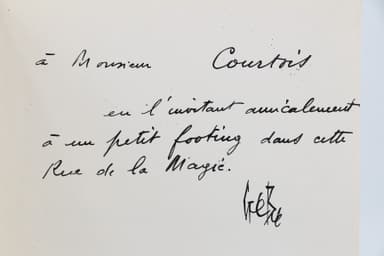 à Monsieur Courtois
en l'invitant amicalement
à un petit footing dans cette
Rue de la Magie.